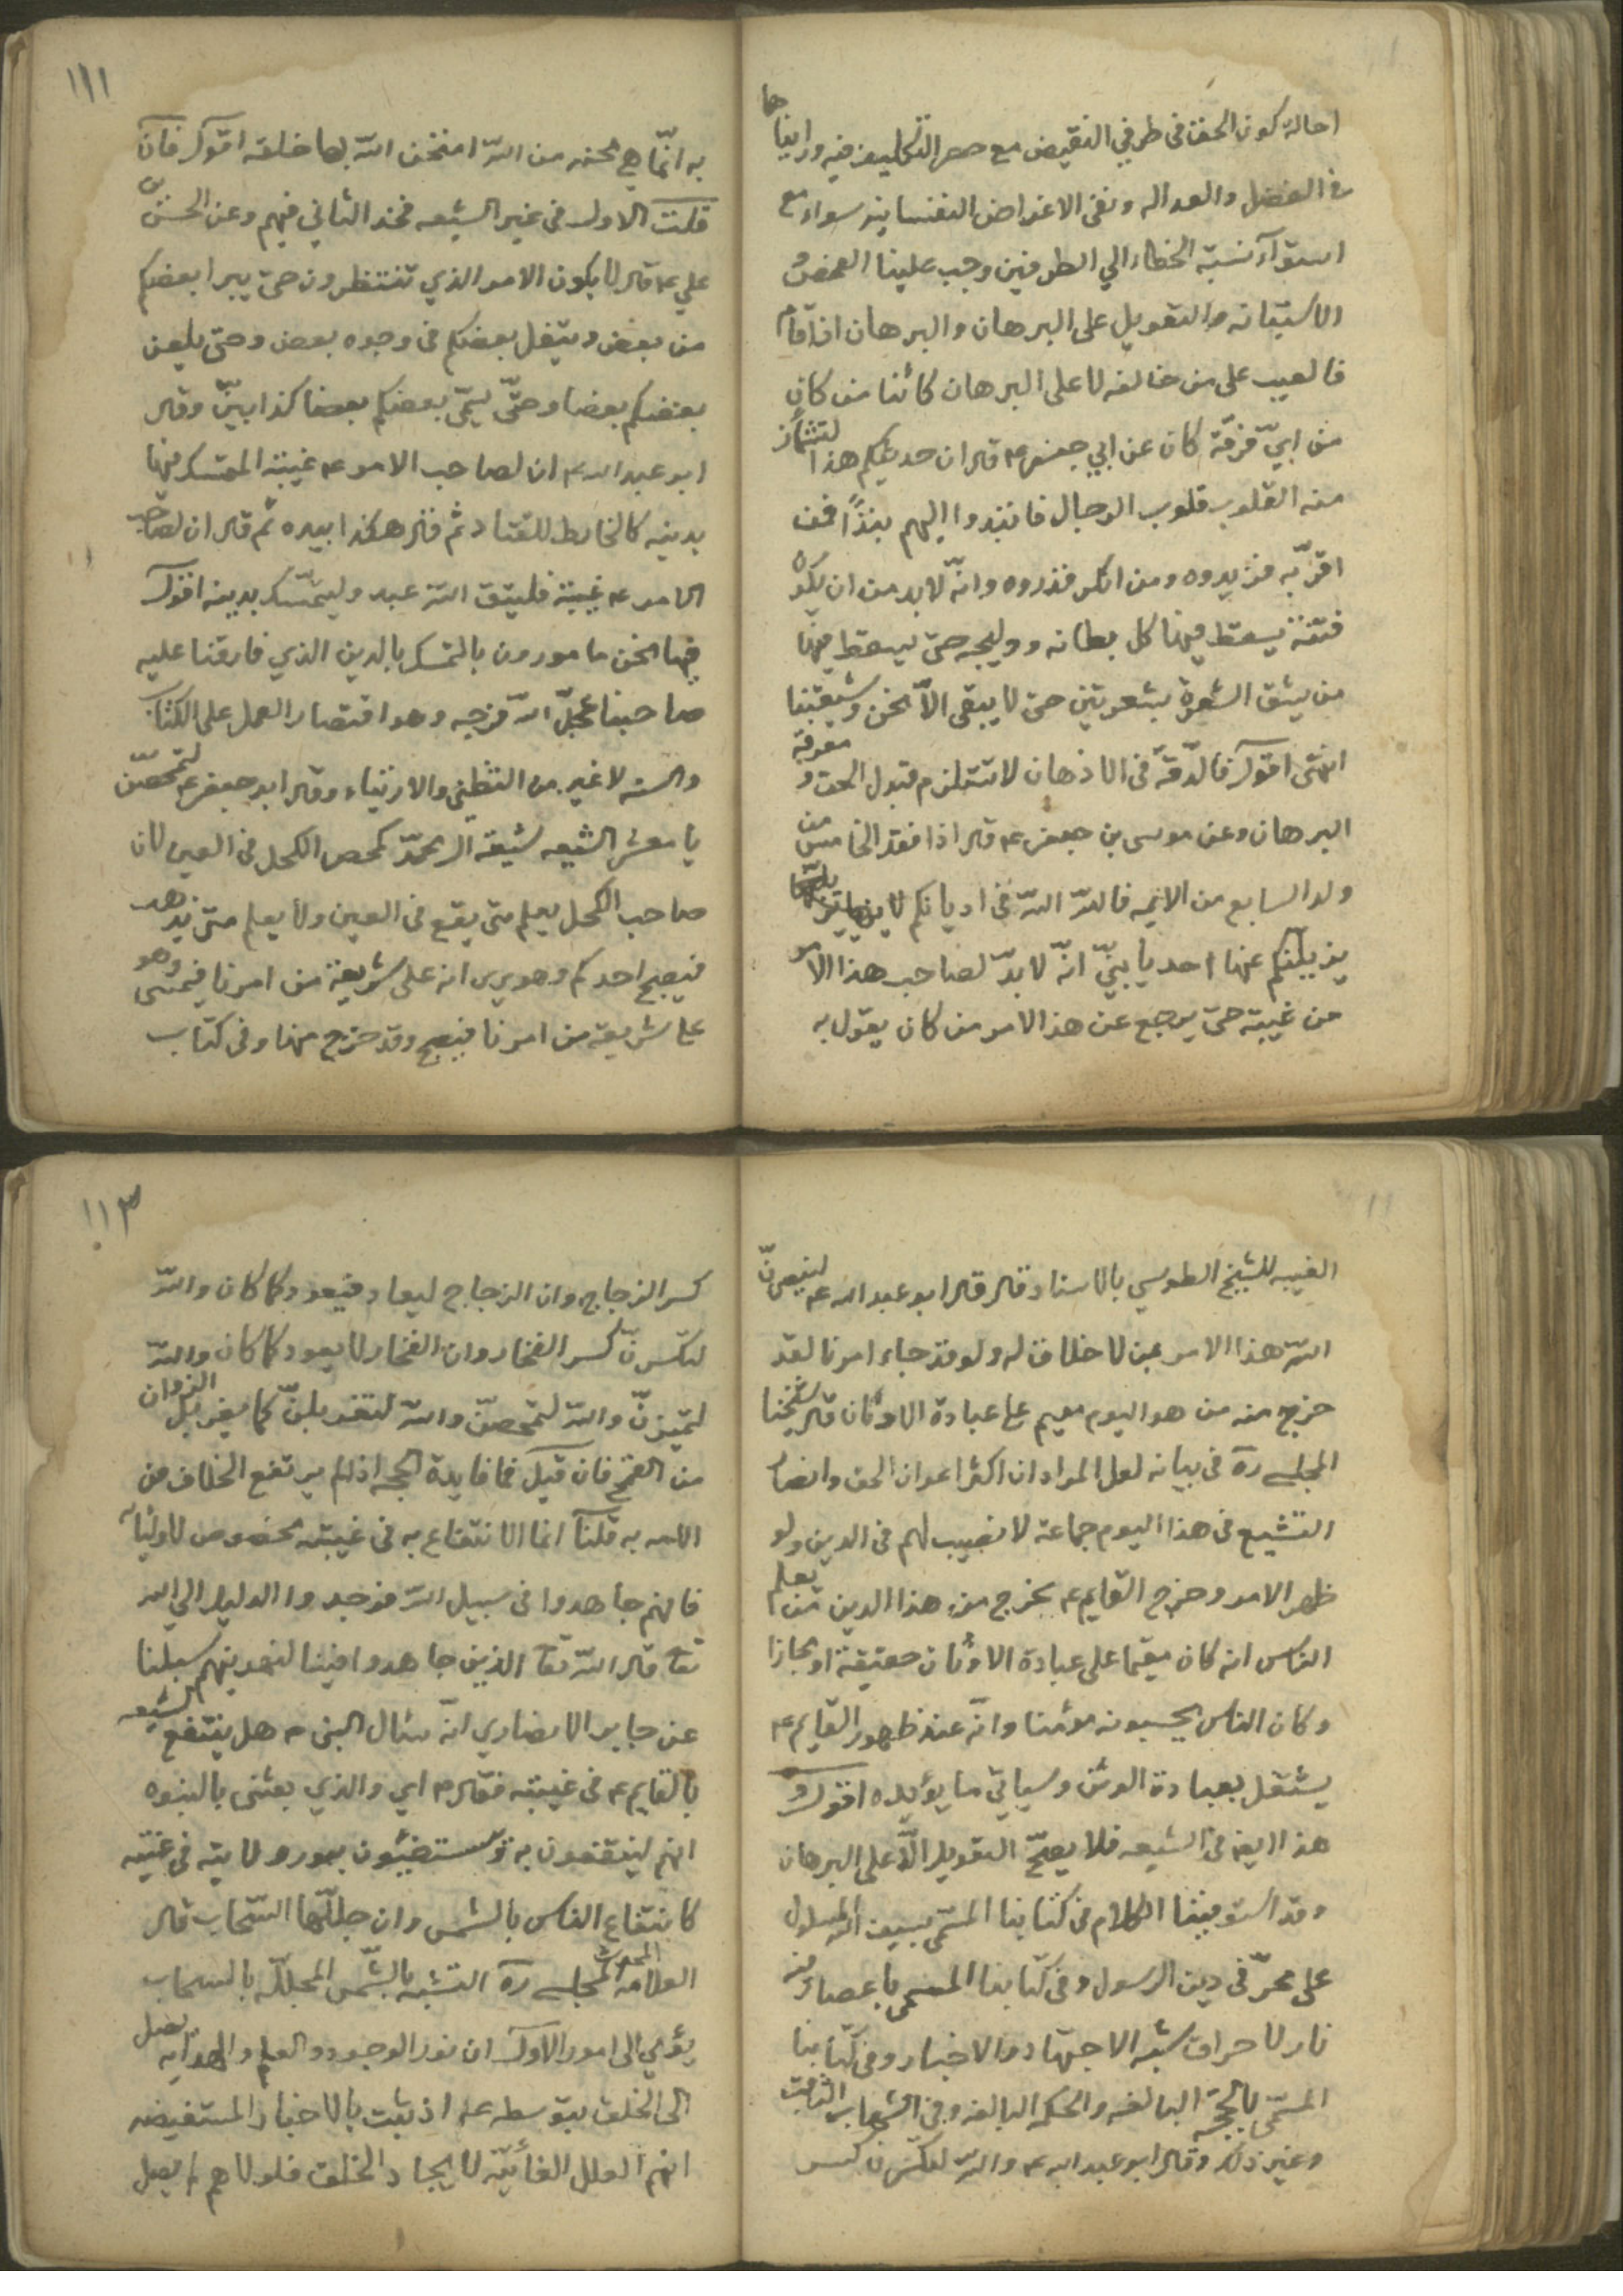 احالة كون الحق في طرفي النقيض مع حصر التكليف فيه ورايناها
في الفضل والعداله ونفى الاغراض النفسانيه سواء مع
استوآء نسبة الخطاء الي الطرفين وجب علينا الفحص و
الاستبانه والتعويل على البرهان والبرهان اذا قام
فالعيب على من خالفه لا على البرهان كائنا من كان
من ايّ فرقة كان عن ابي جعفر ع قال ان حديثكم هذا لتشمأز
منه القلوب قلوب الرجال فانبذوا اليهم نبذاً فمن
اقرّ به فزيدوه ومن انكر فذروه وانّه لا بد من ان يكون
فتنة يسقط فيها كل بطانه ووليجه حتى يسقط فيها
من يشق الشعرة بشعرتين حتى لا يبقى الاّ نحن وشيعتنا
انتهى اقول فالدّقه في الاذهان لا تستلزم قبول الحق و معرفة
البرهان وعن موسى بن جعفر ع قال اذا فقد الخامس من
ولد السابع من الائمه فالله الله في اديانكم
يزيلنكم عنها احد يا بنيّ انّه لا بدّ لصاحب هذا الامر
من غيبة حتى يرجع عن هذا الامر من كان يقول به
١١١
به انّما هي محنه من الله امتحن الله بها خلقه اقول فان
قلت الاول في غير الشيعه فخذ الثاني فيهم وعن الحسن بن
علي ع قال لا يكون الامر الذي تنتظرون حتى يبرا بعضكم
من بعض ويتفل بعضكم في وجوه بعض وحتى يلعن
بعضكم بعضا وحتّى يسمّى بعضكم بعضا كذابين وقال
ابو عبد الله ع ان لصاحب الامر ع غيبة المتمسك فيها
بدينه كالخارط للقتاد ثم قال هكذا بيده ثم قال ان لصاحب
الامر ع غيبة فليتق الله عبد وليتمسّك بدينه اقول
فها نحن مامورون بالتمسك بالدين الذي فارقنا عليه
صاحبنا عجلّ الله فرجه وهو اقتصار العمل على الكتاب
والسنه لا غير من التظني والارتياء وقال ابو جعفر ع لتمحصّن
يا معشر الشيعه شيعة ال محمّد كمحص الكحل في العين لان
صاحب الكحل يعلم متى يقع في العين ولا يعلم متى يذهب
فيصبح احدكم وهو يرى انه على شريعة من امرنا فيمسى وهو
على شريعة من امرنا فيصبح وقد خرج منها وفي كتاب
الغيبه للشيخ الطوسي بالاسناد قال قال ابو عبد الله ع لينصرنّ
الله هذا الامر بمن لا خلاق له ولو قد جاء امرنا لقد
خرج منه من هو اليوم مقيم على عبادة الاوثان قال شيخنا
المجلسي ره في بيانه لعل المراد ان اكثر اعوان الحق وانصار
التشيع في هذا اليوم جماعة لا نصيب لهم في الدين ولو
ظهر الامر وخرج القايم ع يخرج من هذا الدين من يعلم
الناس انه كان مقيما على عبادة الاوثان حقيقة او مجازا
وكان الناس يحسبونه مؤمنا وانّه عند ظهور القايم ع
يشتغل بعبادة الوثن وسياتي ما يؤيده اقول و
هذا ايضا في الشيعه فلا يصحّ التعويل الاّ على البرهان
وقد استوفينا الكلام في كتابنا المسمّى بسيف الله المسلول
على محرّفي دين الرسول وفي كتابنا المسمى باعصار فيه
نار لاحراق شبه الاجتهاد والاخبار وفي كتابنا
المسمّى بالحجّة البالغه والحكمه البالغه وفي الشهاب الثاقب
وغير ذلك وقال ابو عبد الله ع والله لتكسّرن كسر
١١٣
كسر الزجاج وان الزجاج ليعاد فيعود كما كان والله
لتكسّرنّ كسر الفخار وان الفخار لا يعود كما كان والله
لتميّزنّ والله لتمحصنّ والله لتغربلنّ كما يغربل الزوان
من القمح فان قيل فما فايدة الحجه اذ لم يرتفع الخلاف من
الامه به قلنا انما الانتفاع به في غيبته مخصوص لاوليائه
فانهم جاهدوا في سبيل الله فوجدوا الدليل الي الله
تعا قال الله تعا الذين جاهدوا فينا لنهدينهم سبلنا
عن جابر الانصاري انّه سئال النبى ص هل ينتفع الشيعه
بالقايم ع في غيبته فقال ص اي والذي بعثنى بالنبوه
انهم لينتفعون به ويستضيئون بنور ولايته في غيبته
كانتفاع الناس بالشمس وان جللّها السّحاب قال
العلامه المحدث المجلسي ره التشبه بالشّمس المجلّله بالسحاب
يؤمي الى امور الاول ان نور الوجود والعلم والهدايه يصل
الى الخلق بتوسطه ع اذ ثبت بالاخبار المستفيضه
انهم العلل الغائيّه لايجاد الخلق فلولاهم لم يصل